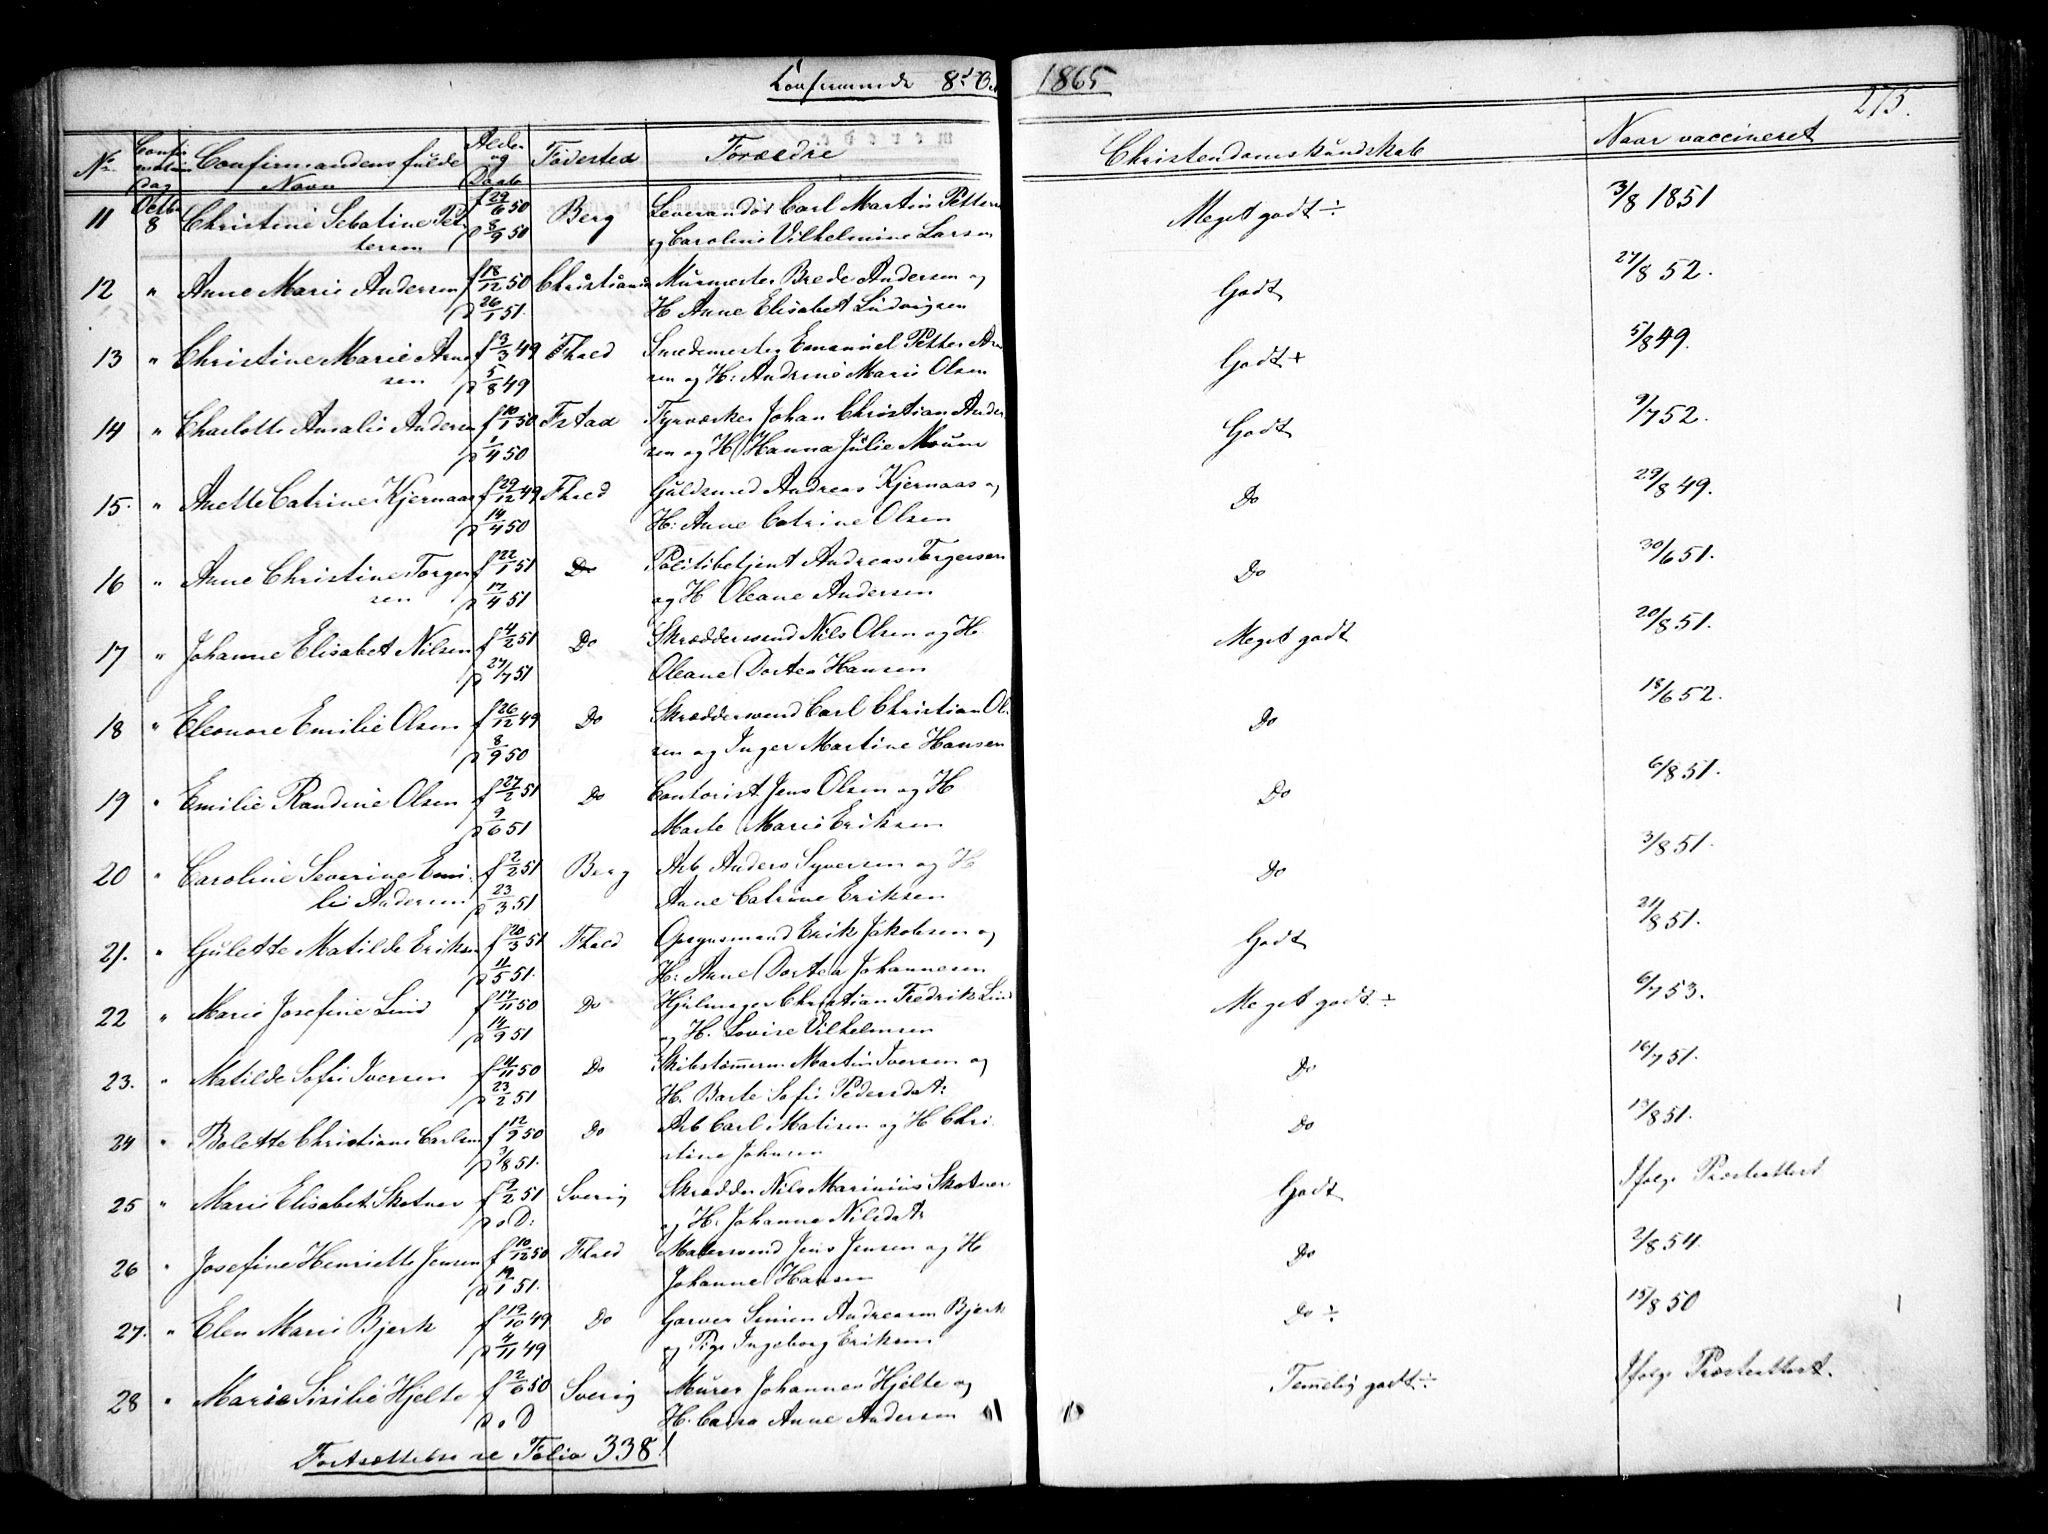 Confirmerede 8d Oc 1865
275.
No Confirmationsdag Confirmandens fulde Navn Alder og Daab Fødested Forældre Christendomskundskab Naar vaccineret
11 Octbr 8 Christine Sebatine Pet- f 29/6 50 Berg Leverandør Carl Martin Petters Meget godt ÷ 3/8 1851
tersen d 8/9 51 og Caroline Vilhelmine Larsen
12 " Anne Marie Andersen f 18/12 50 Christiania Murmester Brede Andersen og Godt 27/8 52.
d 26/1 51. H Anne Elisabet Ludvigsen
13 " Christine Marie Arne f 3/3 49 Fhald Smedemester Emanuel Petter Arn Godt + 5/8 49.
sen d 5/8 49 sen og H: Andrine Marie Olsen
14 " Charlotte Amalie Andersen f 10/1 50 Fstad Fyrvæsker Johan Christian Ander Godt 9/7 52.
d 1/4 50 sen og H Hanna Julie Moum
15. " Anette Catrine Kjernaas f 29/12 49 Fhald Guldsmed Andreas Kjernaas og Do 29/8 49.
d 14/4 50 H: Anne Catrine Olsen
16 " Anne Christine Torger f 22/1 51 Do Politibetjent Andreas Torgersen Do 30/6 51.
sen d 17/4 51 og H Oleane Andersen
17 " Johanne Elisabet Nilsen f 4/2 51 Do Skræddersvend Nils Olsen og H. Meget godt 20/8 51.
d 27/7 51 Oleane Dortea Hansen
18 " Eleonore Emilie Olsen f 26/12 49 Do Skræddersvend Carl Christian Ol- Do 18/6 52.
d 8/9 50 sen og Inger Martine Hansen
19 " Emilie Randine Olsen f 27/2 51 Do Contorist Jens Olsen og H Do 6/8 51.
d 9/6 51 Marte Marie Eriksen
20 " Caroline Severine Emi- f 2/2 51 Berg Arb Anders Syversen og H Do 3/8 51.
lie Andersen d 23/3 51 Anne Catrine Eriksen
21. " Gulette Matilde Eriksen f 20/3 51 Fhald Opsynsmand Erik Jakobsen og Godt 21/8 51.
d 11/5 51. H: Anne Dortea Johannesen
22 " Marie Josefine Lind f 17/11 50 Do Hjulmager Christian Fredrik Lind Meget godt ÷ 6/7 53.
d 14/9 51 og H. Lovise Vilhelmsen
23. " Matilde Sofie Iversen f 14/11 50 Do Skibstømmerm Martin Iversen og Do 16/7 51.
d 23/2 51 H. Barte Sofie Pedersdat:
24 " Bolette Christiane Carlsen f 12/9 50 Do Arb Carl Matisen og H Chri- Do 13/8 51.
d 3/8 51. stine Johnsen
25 " Marie Elisabet Skotner f 9/2 51 Sverig Skrædder Nils Marinius Skotner Godt Ifølge Præsteattest
d o D: og H: Johanne Nilsdat:
26 " Josefine Henriette Jensen f 10/12 50 Fhald Malersvend Jens Jensen og H Do 2/8 54.
d 19/1 51. Johanne Hansen
27. " Elen Marie Bjerk f 19/10 49 Do Garver Simen Andreassen Bjerk Do ÷ 15/8 50
d 4/11 49 og Pige Ingeborg Eriksen
28 " Marie Sisilie Hjelte f 2/6 50 Sverig Murer Johannes Hjelte og Temmelig godt ÷ Ifølge Præsteattest.
d o D H. Cassa Anne Andersen
Fortsættelse se Folio 338!